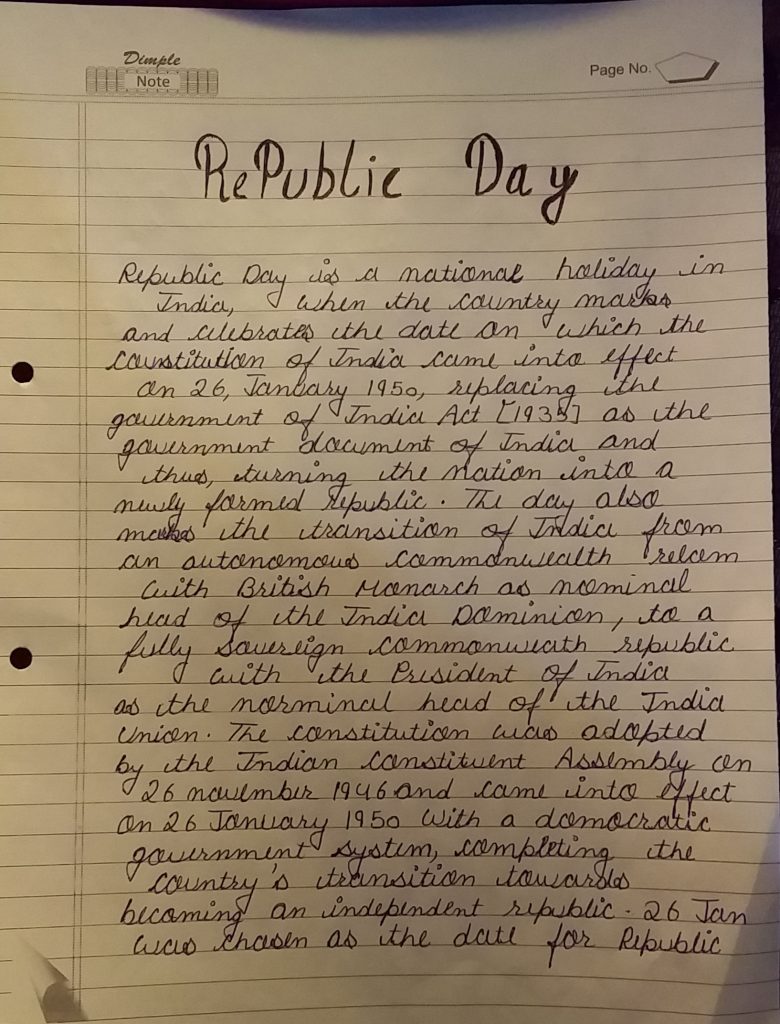 Dimple
Note
Page No.
RePublic Day
Republic Day is a national holiday in
India, when the country marks
and celebrates the date on which the
constitution of India came into effect
on 26, January 1950, replacing the
government of India Act [1935] as the
government document of India and
thus, turning the nation into a
newly formed republic. The day also
marks the transition of India from
an autonomous commonwealth relam
with British Monarch as nominal
head of the India Dominion, to a
fully sovereign commonweath republic
with the President of India
as the norminal head of the India
union. The constitution was adopted
by the Indian constituent Assembly on
26 november 1946 and came into effect
on 26 January 1950 with a domocratic
government system, completing the
country's transition towards
becoming an independent republic. 26 Jan
was chosen as the date for Republic